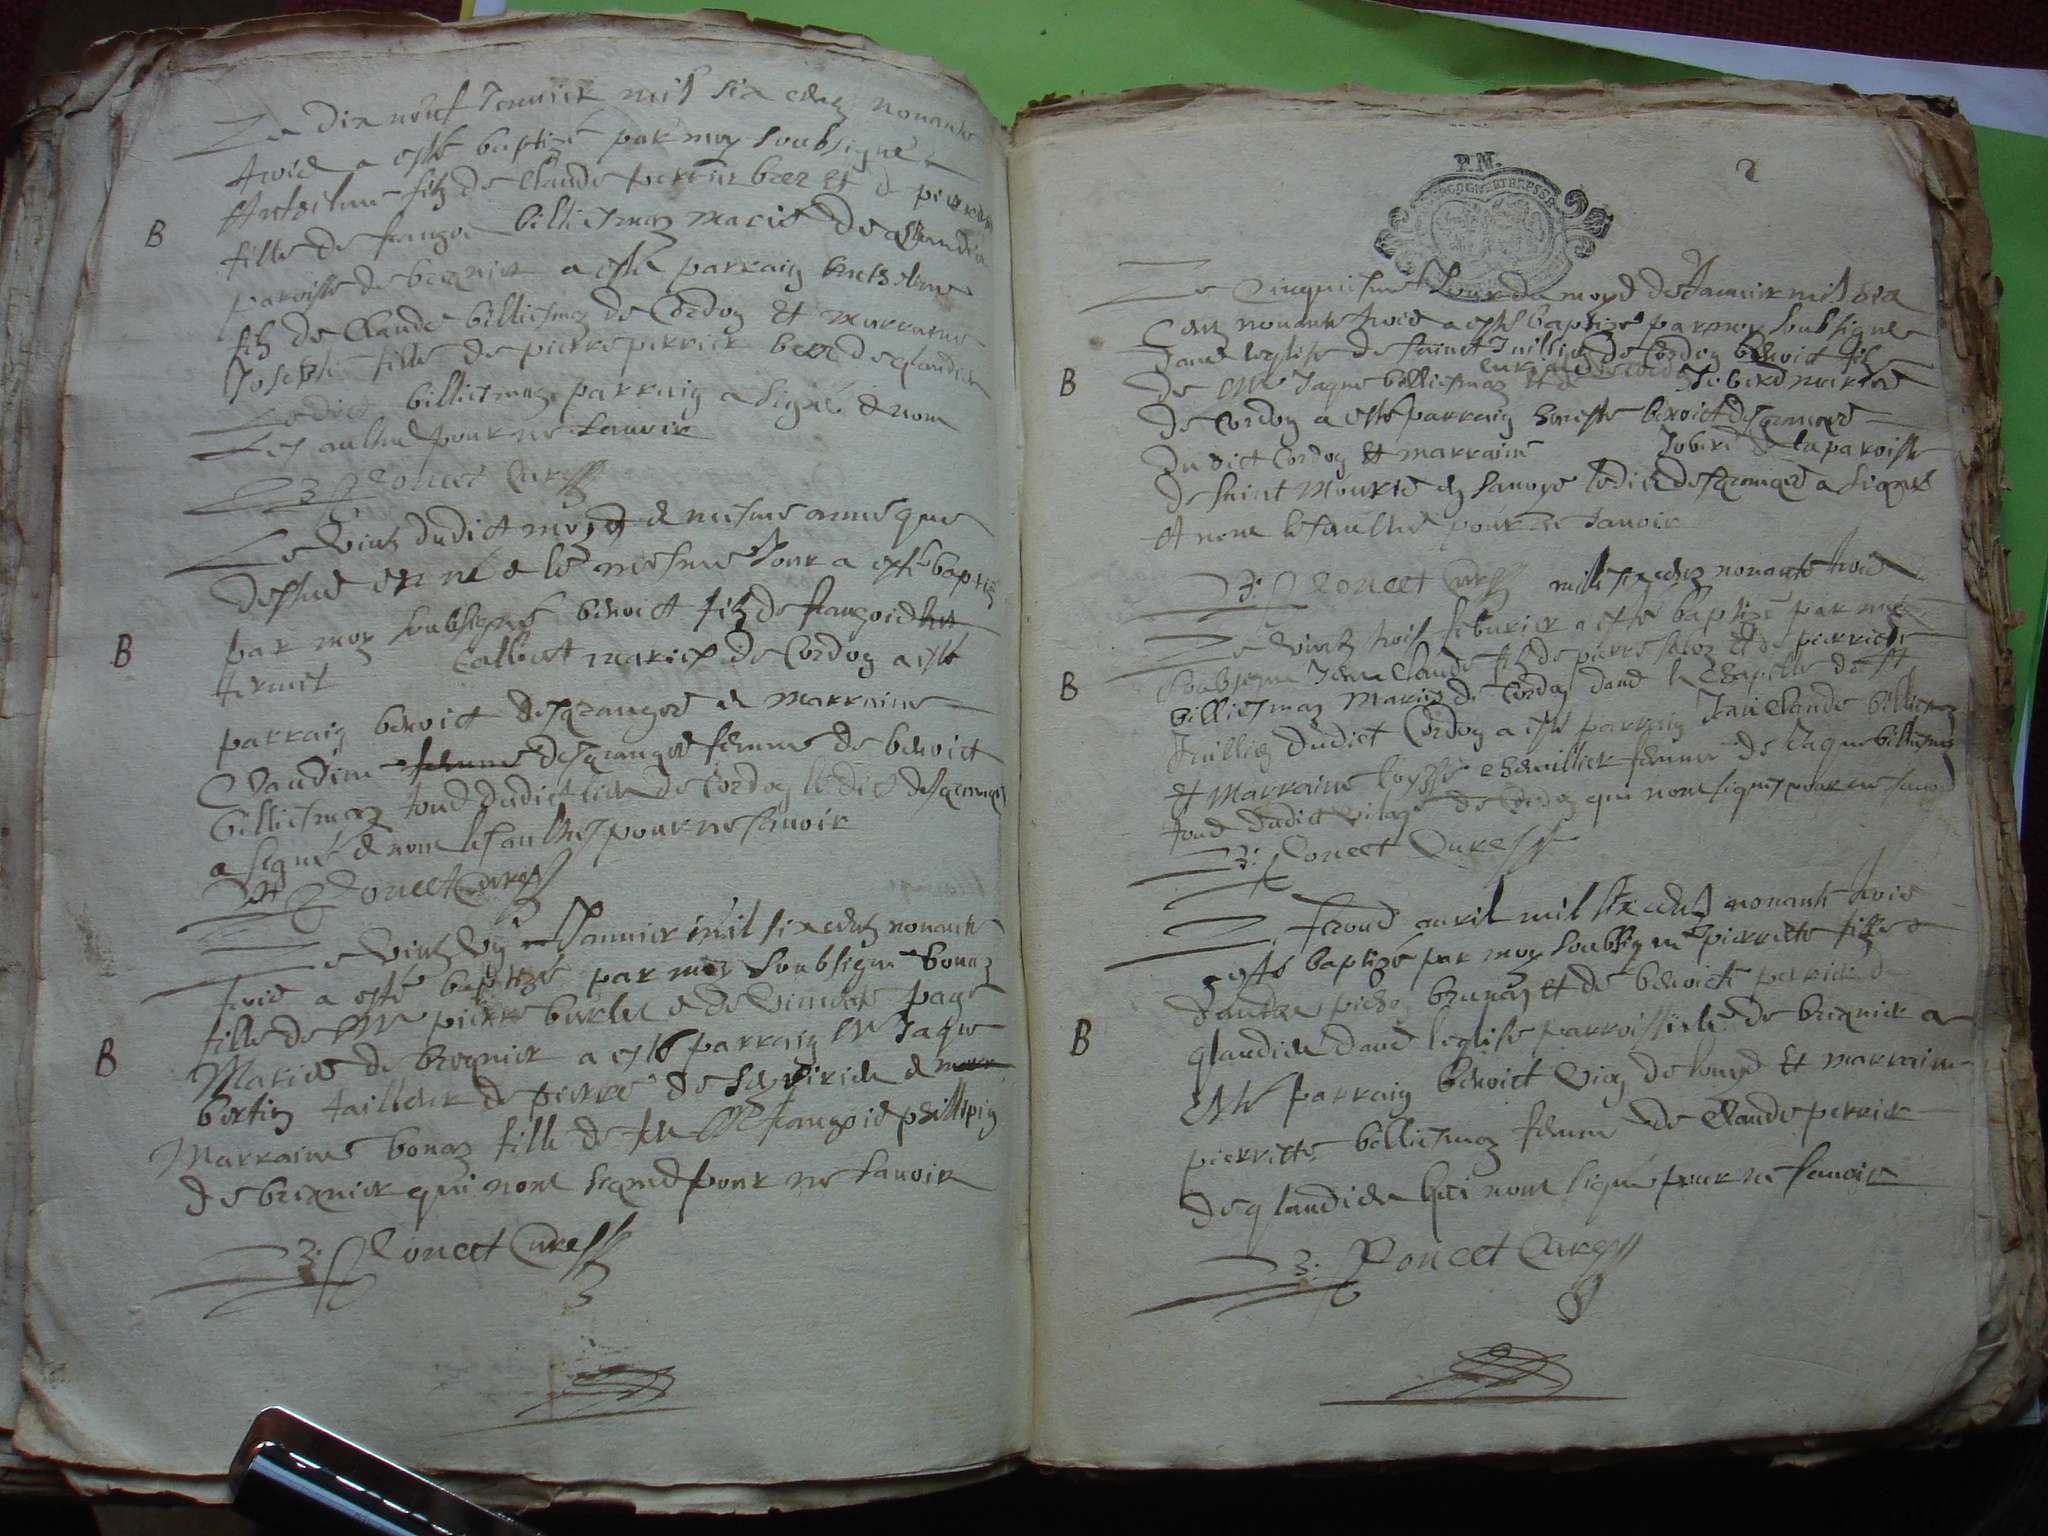 Le dix neuf Jenvier mil six centz nonante
trois a esté baptizé par moy soubsigné
Anthelme filz de Claude perrier et de pierrette
B
fille de françois billiesmaz mariés de glandieu
paroisse de bregnier a esté parraig Anthelme
filz de Claude billiesmaz de Cordog et marraine
Josepte fille de pierre perrier de glandieu
Ledict billiesmaz parraig a signé & nom
les aultres pour ne scavoir
Poncet Curé
Le vint dudict moys & mesme anné que
dessus est né & le mesme Jour a esté baptizé
par moy soubsigné benoict filz de françois
B
Callieet mariés de Cordog a esté
parraig benoict desgranges & marraine
Claudine femme desgranges femme de benoict
billiesmaz tous dudict lieu de Cordog le dict desgranges
a signé & nom les aultres pour ne scavoir
Poncet Curé
Le vint Janvier mil six centz nonante
trois a esté baptizé par moy soubsigné bonaz
fille de Mre pierre & de page
B
Mariés de bregnier a esté parraig Mre Jaque
bertin tailleur de pierre de & marr
Marraine bonaz fille de feu Mre françois phillipig
de bregnier qui nont signés pour ne scavoir
Poncet Curé
P.M.
2
Le Cinquiesme Jour du moys de Janvier mil six
Centz nonante trois a esté baptizé par moy soubsigné
dans leglise de sainct Juillien de Cordog benoict filz
B
de Mre Jaque billiesmaz et de Joberd mariés
de Cordog a esté parraig honeste benoict desgranges
du dict Cordog et marraine Joberd de la paroisse
de saint Mouris en savoye ledict desgranges a signé
et nom les aultres pour ne scavoir
Poncet Curé mil six centz nonante trois
Le vintz trois febvrier a esté baptizé par moy
B
soubsigné Jean Claude filz de pierre et de pierrette
billiesmaz Mariés de Cordog dans la Chapelle de st
Juillien dudict Cordog a esté parraig Jan Claude billiesmaz
et Marraine femme de Jaque billiesmaz
tous dudict vilage de Cordog qui nont signés pour ne scavoir
Poncet Curé
avril mil six centz nonante trois
esté baptizé par moy soubsigné pierrette fille
dandre et de benoicte perrier de
B
glandieu dans leglise parroissiele de bregnier a
esté parraig benoict et marraine
pierrette billiesmaz femme de Claude perrier
de glandieu qui nont signé pour ne scavoir
Poncet Curé